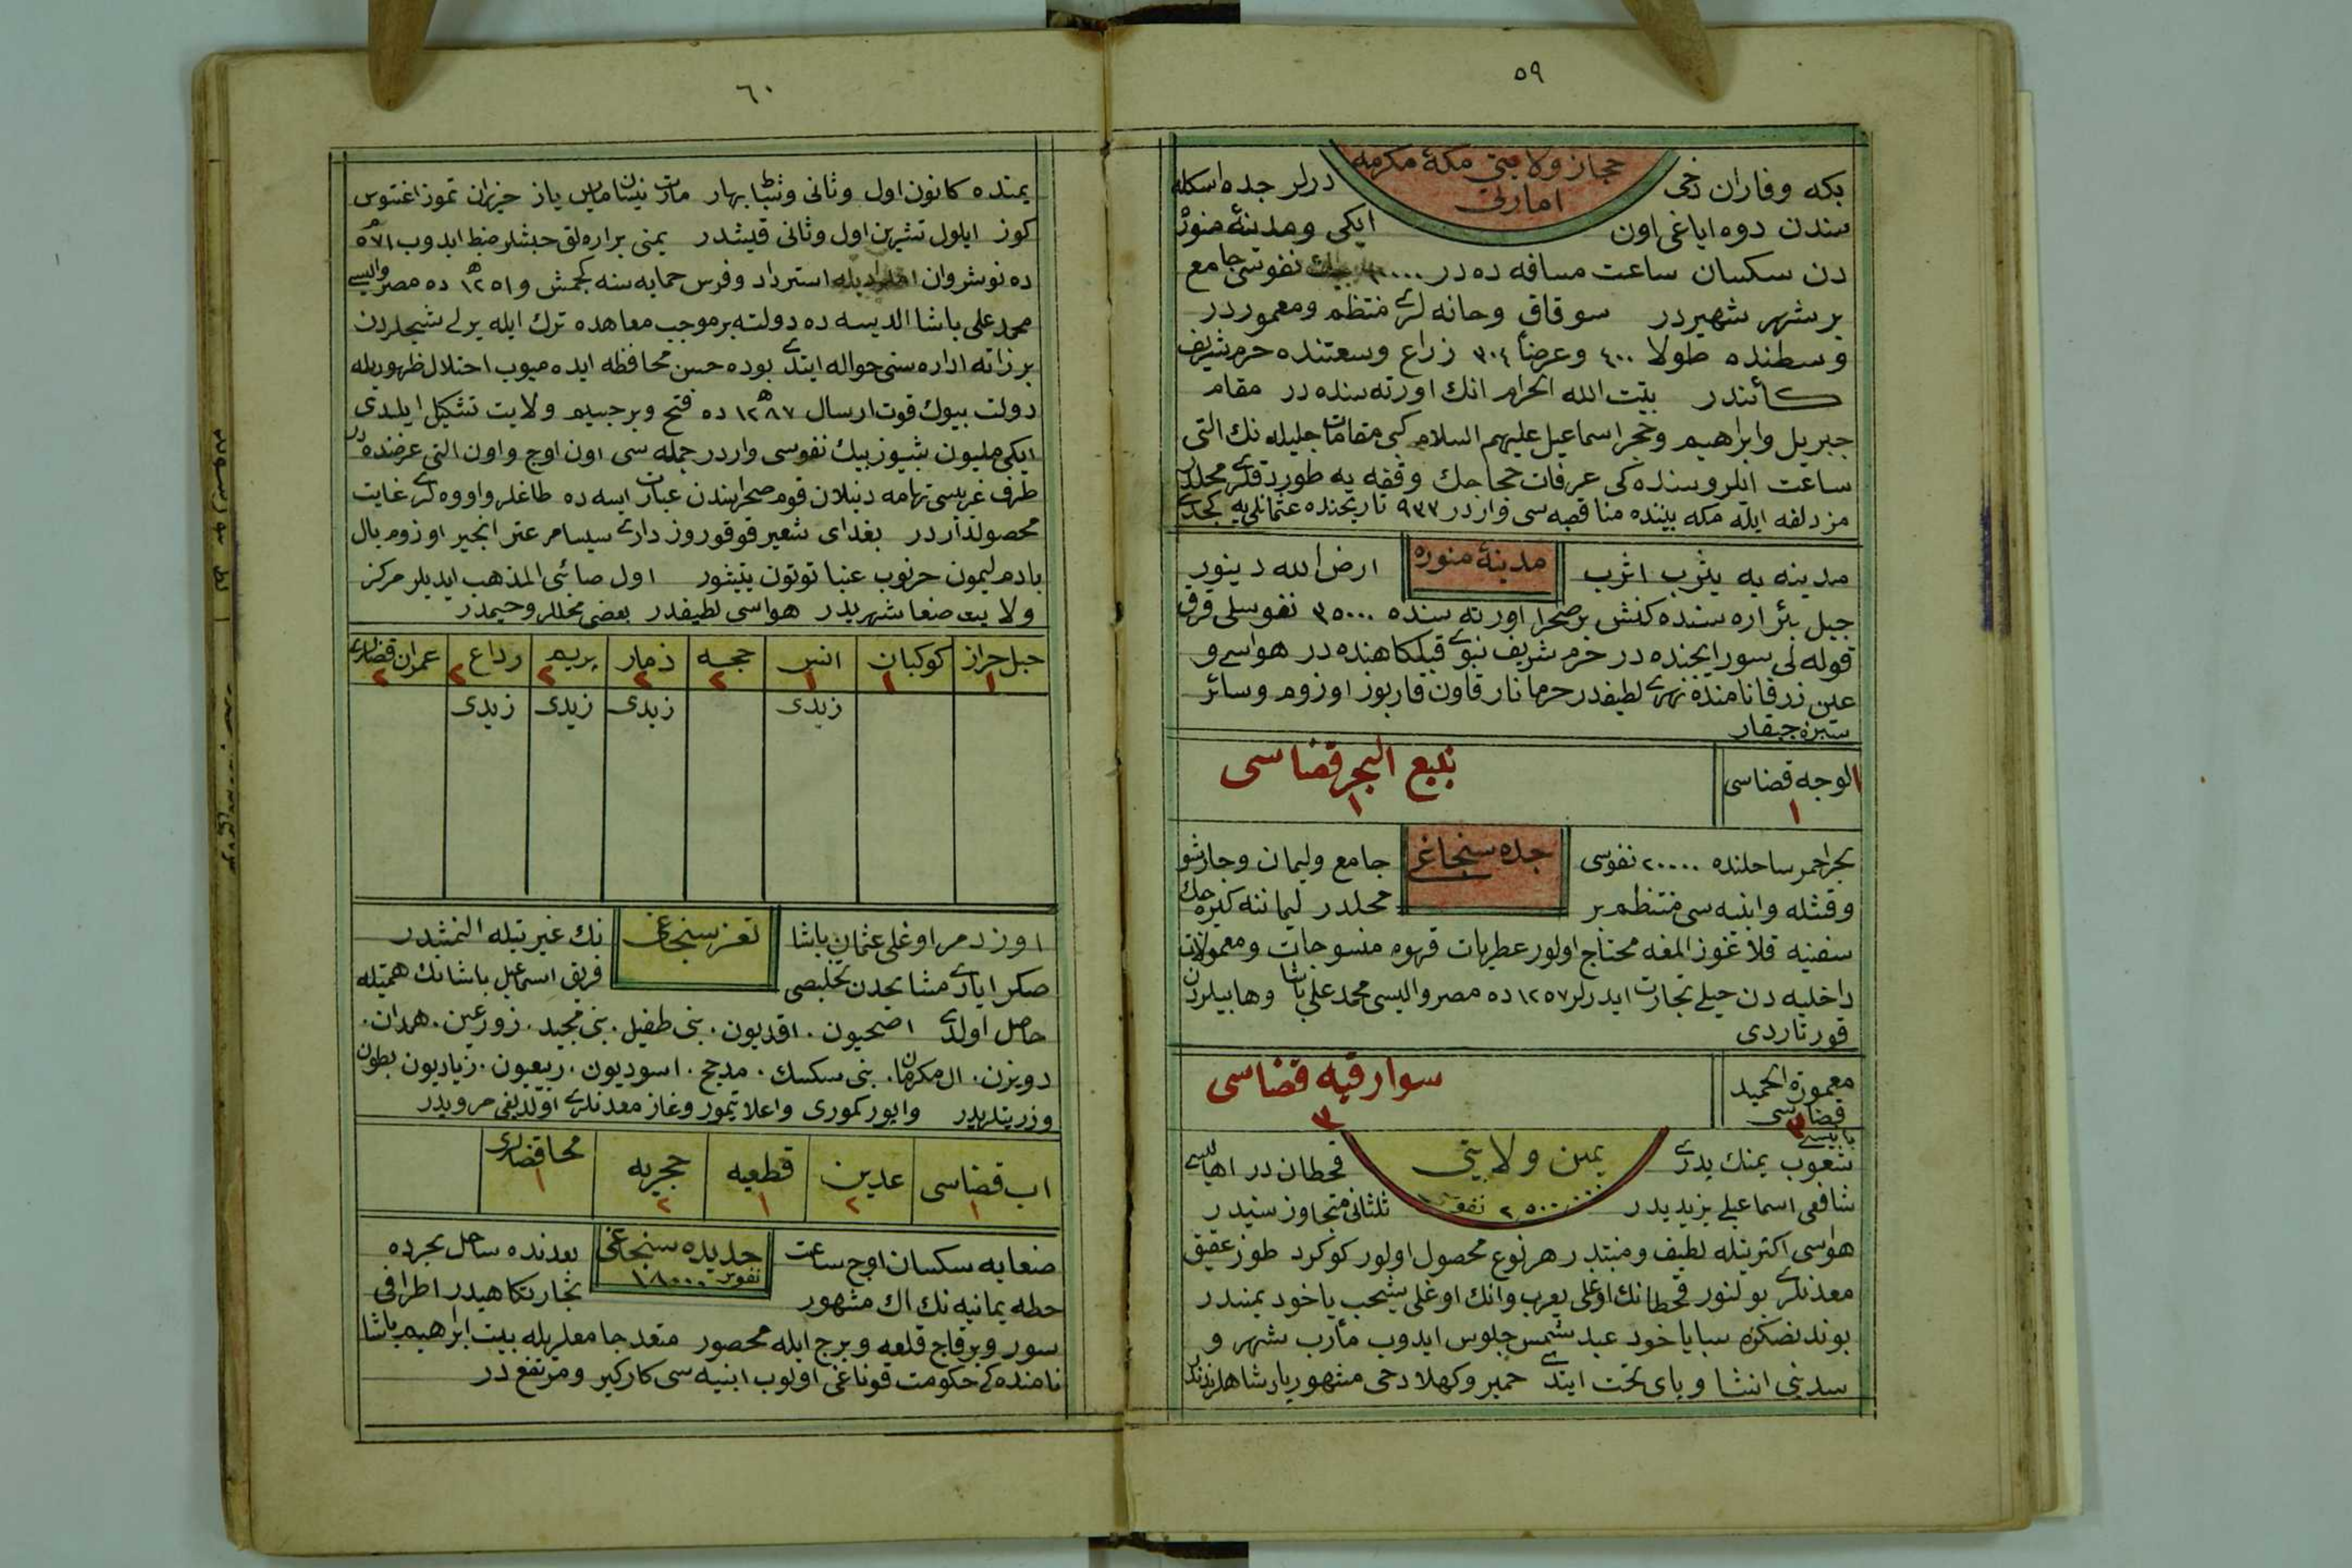 ٥٩
حجاز ولایتی مکهٔ مکرمه
امارتی
بکه وفاران دخی درلر جده اسکله
سندن دوه ایاغی اون ایکی ومدینهٔ منوره
دن سکسان ساعت مسافه ده در نفوسی جامع
بر شهر شهیردر سوقاق وخانه لری منتظم ومعموردر
وسطنده طولا ٤٠٠ وعرضاً ٣٠٤ زراع وسعتنده حرم شریف
کائندر بیت الله الحرام انك اورته سنده در مقام
جبریل وابراهیم وحجر اسماعیل علیهم السلام کبی مقامات جلیله نك التی
ساعت ایلروسنده کی عرفات حجاجك وقفه یه طوردقلری محلدر
مزدلفه ایله مکه بیننده منا قصبه سی واردر ٩٣٣ تاریخنده عثمانلی یه کجدی
مدینهٔ منوره
مدینه یه یثرب اثرب ارض الله دینور
جبل بئر اره سنده کنش بر صحرا اورته سنده ٣٥٠٠٠ نفوسلی قرق
قوله لی سور ایچنده در حرم شریف نبوی قبلکاهنده در هواسی و
عین زرقا نامنده نهری لطیفدر خرما نار قاون قاربوز اوزوم وسائر
سبزه جیقار
الوجه قضاسی
١
ینبع البحر قضاسی
١
جده سنجاغی
بحر احمر ساحلنده ٢٠٠٠٠ نفوسی جامع ولیمان وجارشو
وقشله وابنیه سی منتظم بر محلدر لیماننه کیره جك
سفینه قلاغوز المغه محتاج اولور عطریات قهوه منسوجات ومعمولات
داخلیه دن خیلی تجارت ایدرلر ١٢٥٧ ده مصر والیسی محمد علی پاشا وهابیلردن
قورتاردی
معمورة الحمید
قضاسی
٣
سوارقیه قضاسی
٣
یمن ولایتی
٢٥٠٠٠٠٠ نفوسی
شعوب یمنك پدری قحطان در اهالیسی
شافعی اسماعیلی یزیدیدر ثلثانی متجاوز سنیدر
هواسی اکثریتله لطیف ومنبتدر هر نوع محصول اولور کوکرد طوز عقیق
معدنلری بولنور قحطانك اوغلی یعرب وانك اوغلی یشحب یاخود یمنیدر
بوندنصکره سبا یاخود عبد شمس جلوس ایدوب مأرب شهر و
سدینی انشا وپای تخت ایتدی حمیر وکهلا دخی مشهور پادشاهلرندندر
٦٠
یمنده کانون اول وثانی وشباط بهار مارت نیسان مایس یاز حزیران تموز اغستوس
کوز ایلول تشرین اول وثانی قیشدر یمنی بر ارەلق حبشلر ضبط ایدوب ٥٧١
ده نوشروان استرداد وفرس حمایه سنه کجمش و١٢٥١ ده مصر والیسی
محمد علی پاشا الدیسه ده دولته بر موجب معاهده ترك ایله یرلی شیخلردن
بر ذاته اداره سنی حواله ایتدی بوده حسن محافظه ایده میوب اختلال ظهوریله
دولت بیوك قوت ارسال ١٢٨٧ ده فتح وبر جسیم ولایت تشکیل ایلدی
ایکی ملیون بشیوز بیك نفوسی واردر جمله سی اون اوچ واون التی عرضنده در
طرف غربیسی تهامه دنیلان قوم صحراسندن عبارت ایسه ده طاغلر واووه لری غایت
محصولداردر بغدای شعیر قوقوروز داری سیسام عتر انجیر اوزوم بال
بادم لیمون خرنوب عنبا توتون یتیشور اول صائبی المذهب ایدیلر مرکز
ولایت صنعا شهریدر هواسی لطیفدر بعضی محللر وخیمدر
جبل حراز ١
کوکبان ١
انس ١
حجه ٢
ذمار ٢
یریم ٢
رداع ٢
عمران قضالری ٢
زیدی
زیدی
زیدی
زیدی
تعز سنجاغی
اوزدمر اوغلی عثمان پاشا نك غیرتیله النمشدر
صکرا یادی مشایخدن تخلیصی فریق اسماعیل پاشانك همتیله
حاصل اولدی اصبحیون. اقدیون. بنی طفیل. بنی مجید. زورعین. همدان.
دویزن. ال مکرمان. بنی سکسك. مدجج. اسودیون. ربیعیون. زیادیون بطون
وزریتلریدر وابور کموری واعلا تیمور وغاز معدنلری اولدیغی مرویدر
اب قضاسی ١
عدین ٢
قطعبه ١
حجریه ٢
مخا قضالری ١
حدیده سنجاغی
نفوس ١٨٠٠٠
صنعایه سکسان اوچ ساعت بعدنده ساحل بحرده
خطه یمانیه نك اك مشهور تجارتکاهیدر اطرافی
سور وبرقاج قلعه وبرج ایله محصور متعدد جامعلریله بیت ابراهیم پاشا
نامنده کی حکومت قوناغی اولوب ابنیه سی کارکیر ومرتفع در